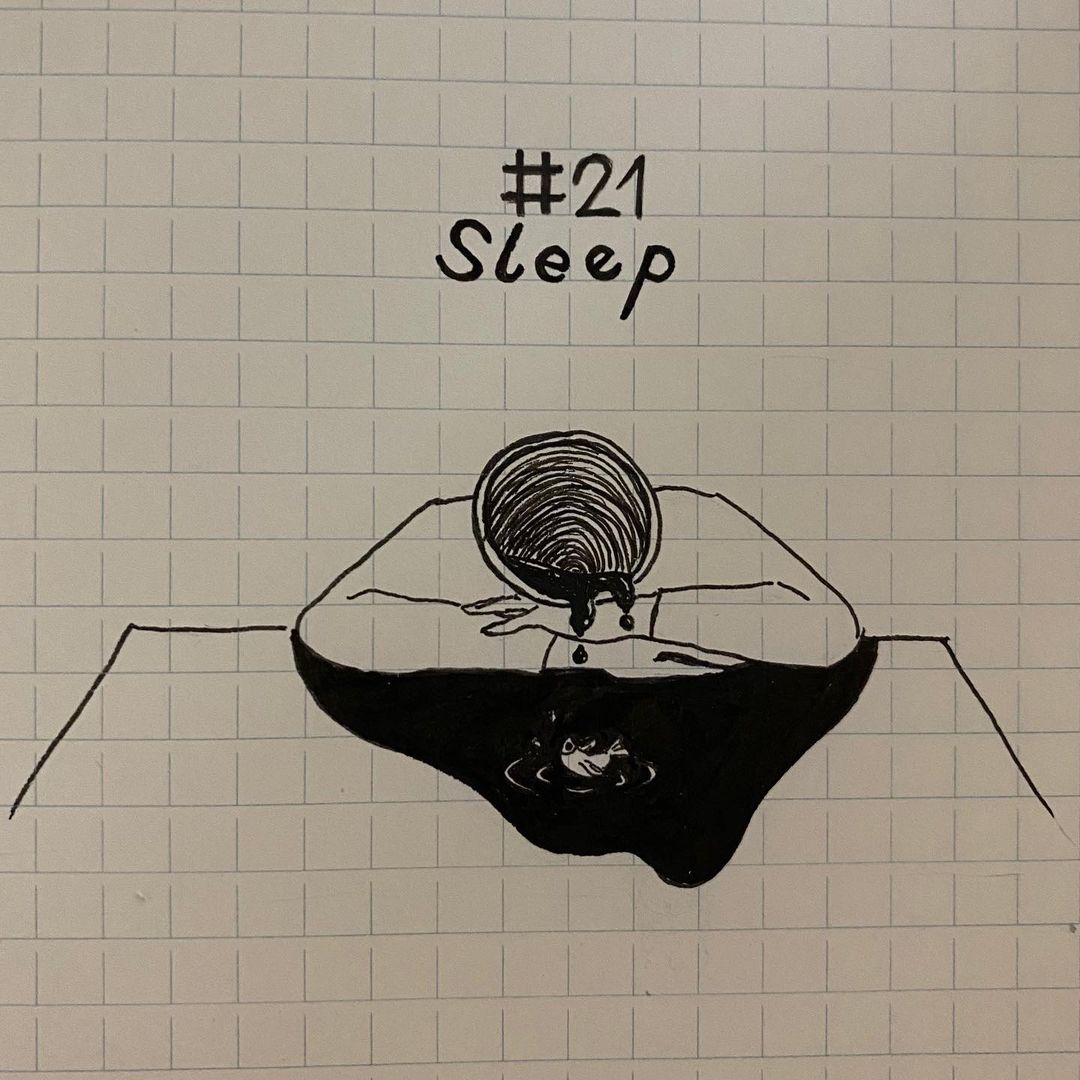 #21
Sleep